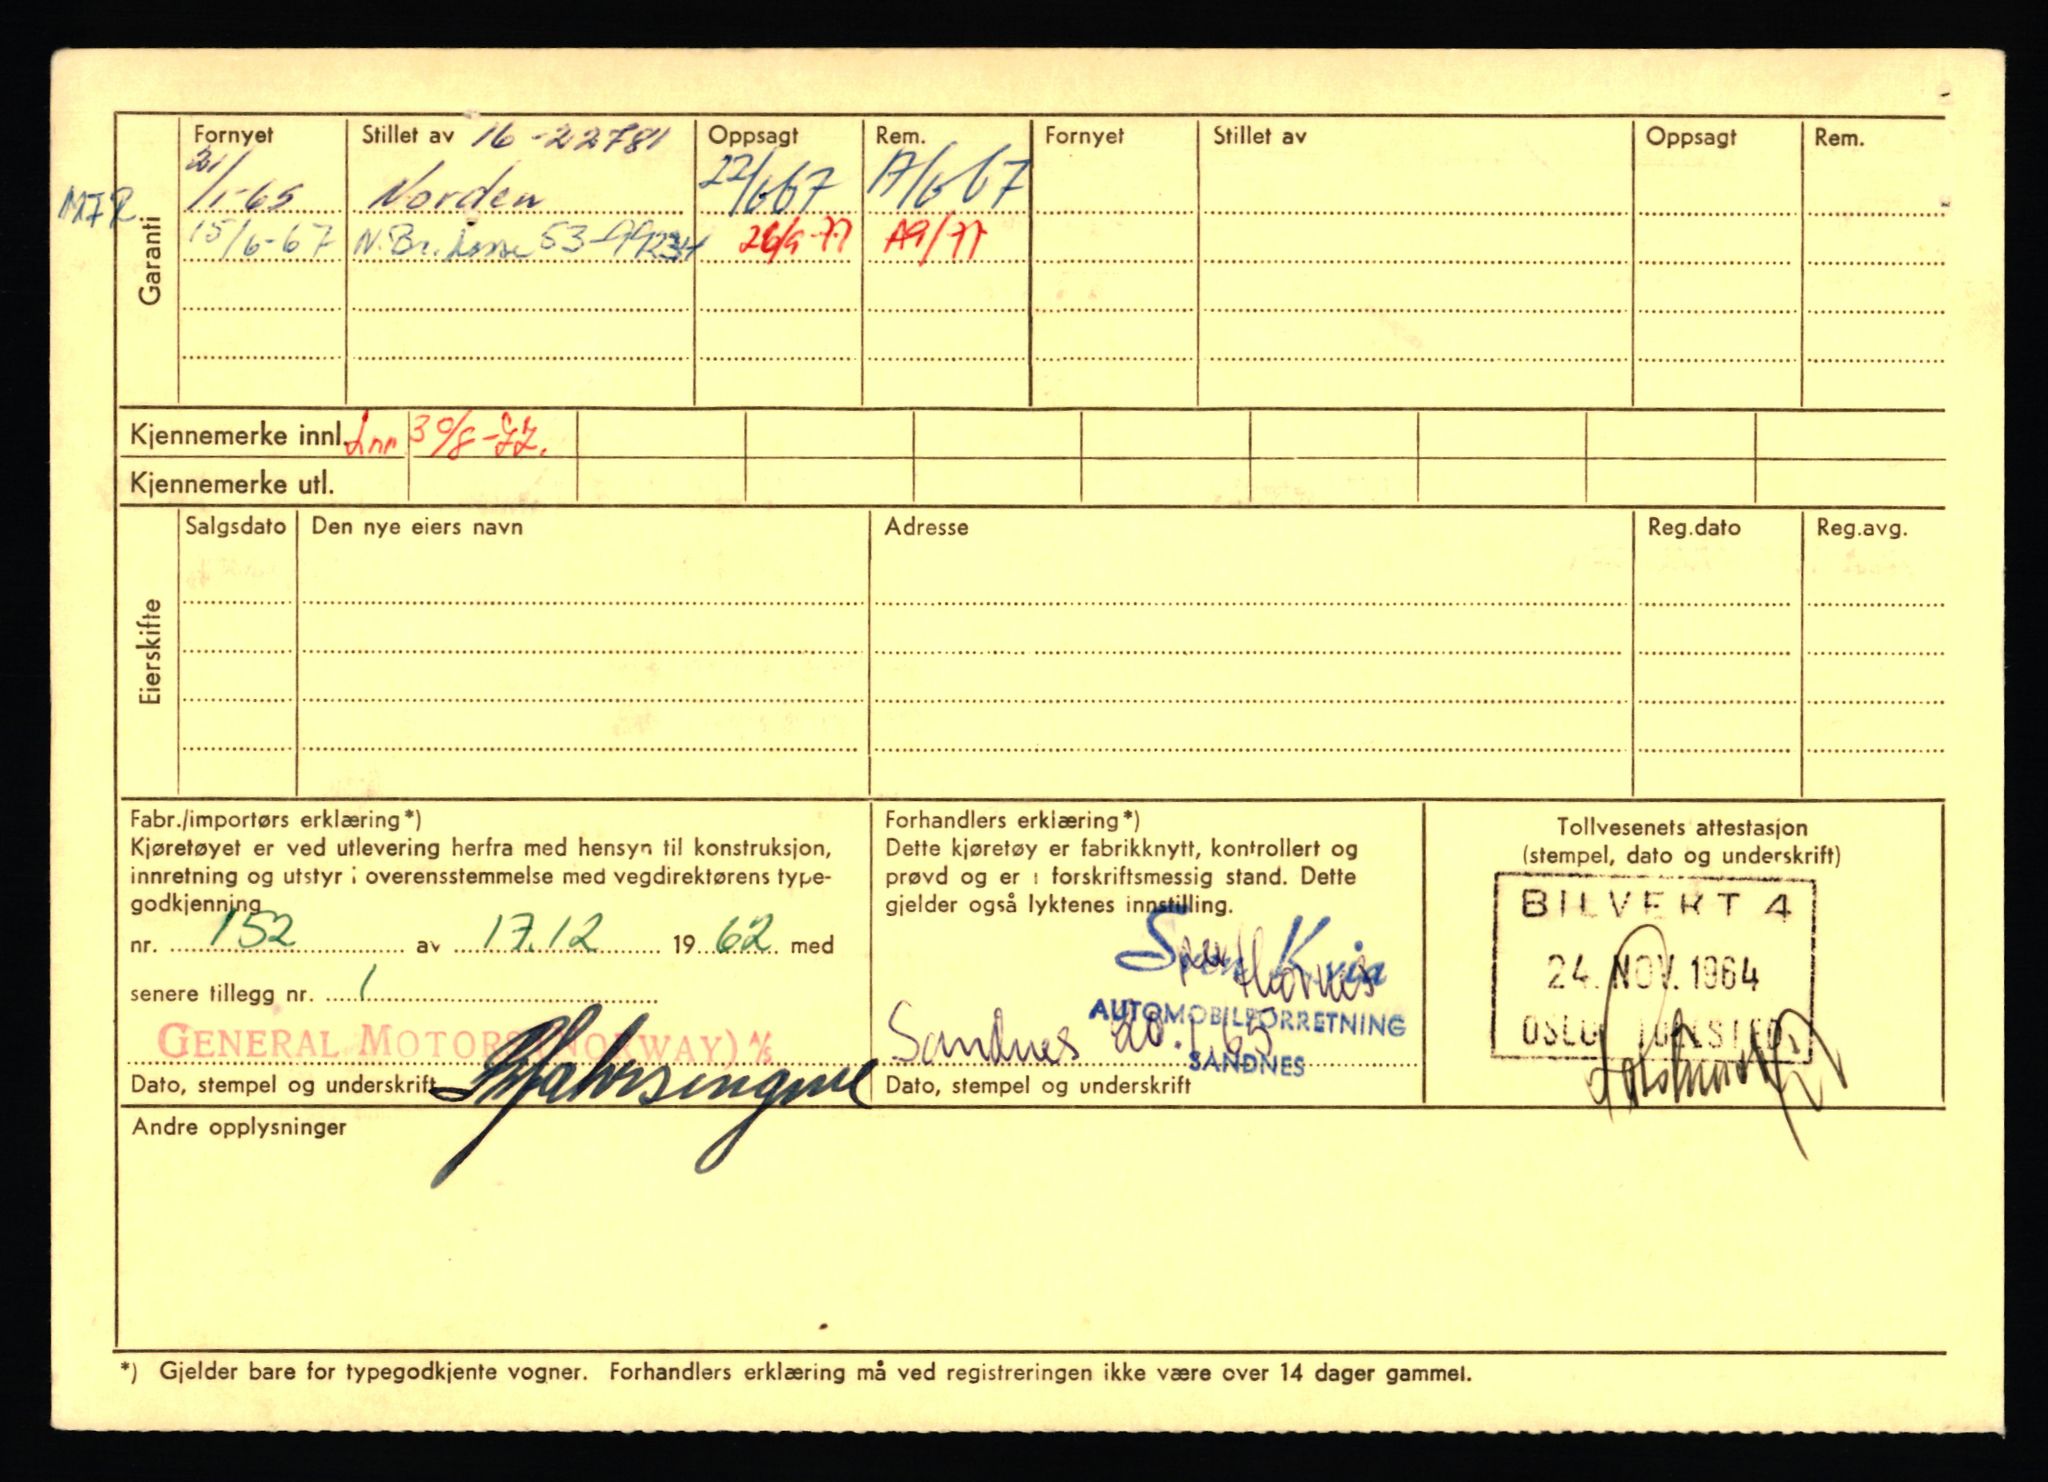 Fornyet Stillet av 16-22781 Oppsagt Rem. Fornyet Stillet av Oppsagt Rem.
Garanti
21/1-65 Norden 22/6 67 A/6 67
15/6-67 26/9-77 A9/77
Kjennemerke innl. Inn 30/8-77.
Kjennemerke utl.
Eierskifte
Salgsdato Den nye eiers navn Adresse Reg.dato Reg.avg.
Fabr./importørs erklæring*)
Kjøretøyet er ved utlevering herfra med hensyn til konstruksjon,
innretning og utstyr i overensstemmelse med vegdirektørens type-
godkjenning
nr. 152 av 17.12 1962 med
senere tillegg nr. 1
GENERAL MOTORS (NORWAY) A/S
Dato, stempel og underskrift
Forhandlers erklæring*)
Dette kjøretøy er fabrikknytt, kontrollert og
prøvd og er i forskriftsmessig stand. Dette
gjelder også lyktenes innstilling.
AUTOMOBILFORRETNING
Sandnes 20.1.65
SANDNES
Dato, stempel og underskrift
Tollvesenets attestasjon
(stempel, dato og underskrift)
BILVERT 4
24. NOV. 1964
OSLO TOLLSTED
Andre opplysninger
*) Gjelder bare for typegodkjente vogner. Forhandlers erklæring må ved registreringen ikke være over 14 dager gammel.